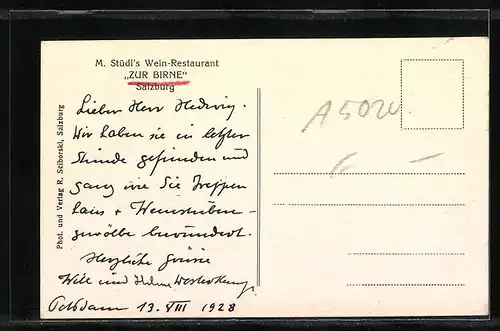 M. Stüdl's Wein-Restaurant
„ZUR BIRNE"
Salzburg
Lieber Herr Hedwig.
Wir haben sie in letzter
Stunde gefunden und
ganz wie Sie Treppen
haus + Weinstuben-
gewölbe bewundert.
Herzliche Grüsse
Will und Helene
Potsdam 13. VIII 1928
Phot. und Verlag R. Seiborski, Salzburg
A5020
6 –